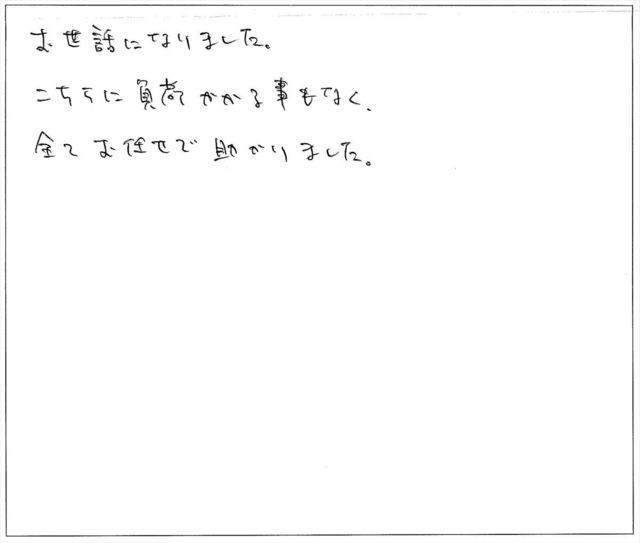 お世話になりました。
こちらに負荷かかる事もなく、
全てお任せで助かりました。